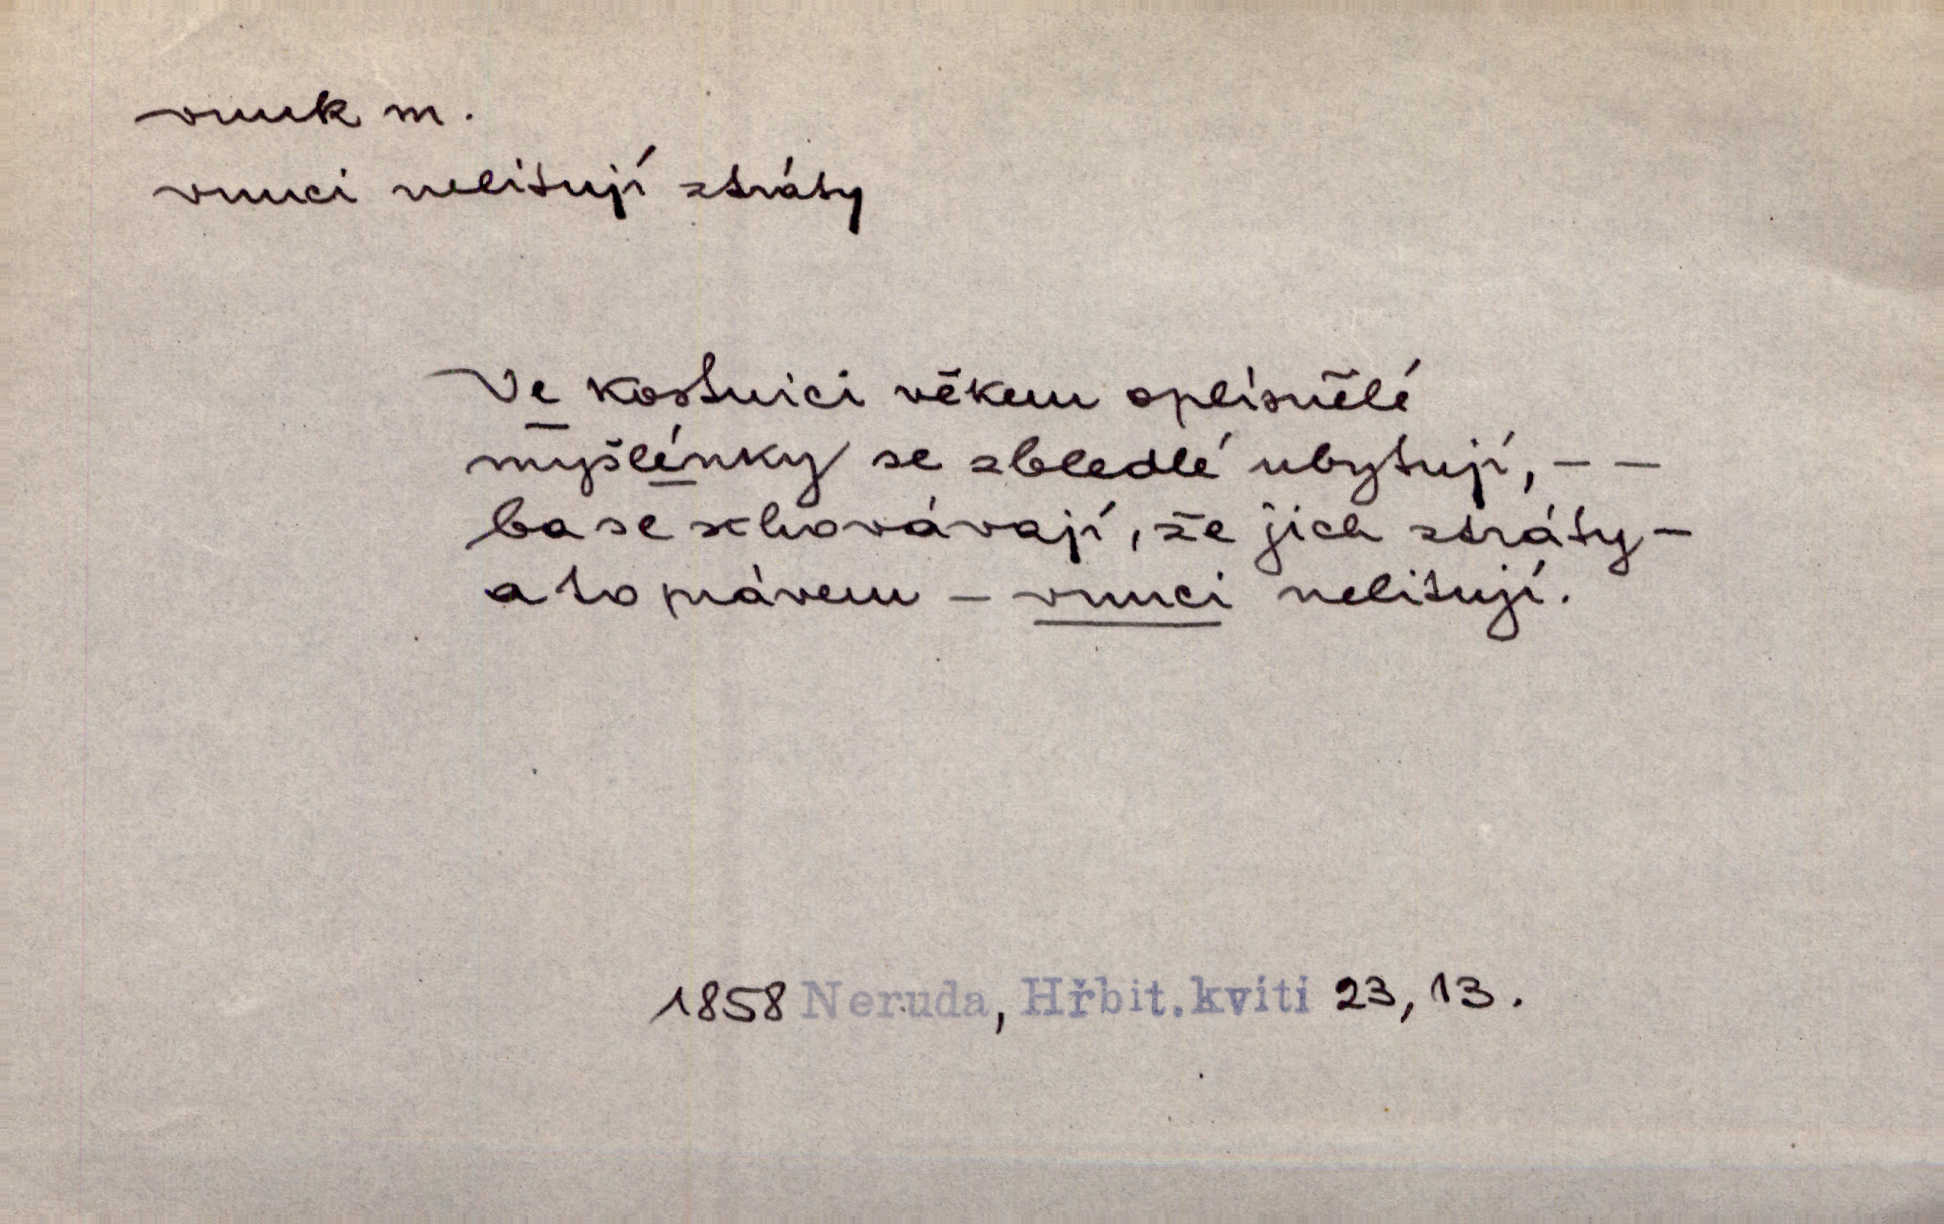 vnuk m.
vnuci nelitují ztráty
Ve kostnici věkem oplísnělé
myšlénky se zbledlé ubytují, – –
ba se schovávají, že jich ztráty –
a to právem – vnuci nelitují.
1858 Neruda, Hřbit. kvítí 23, 13.